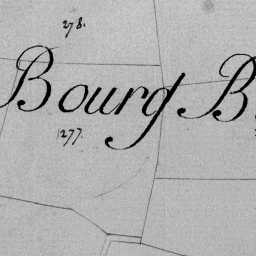 278.
Bourg B
277.